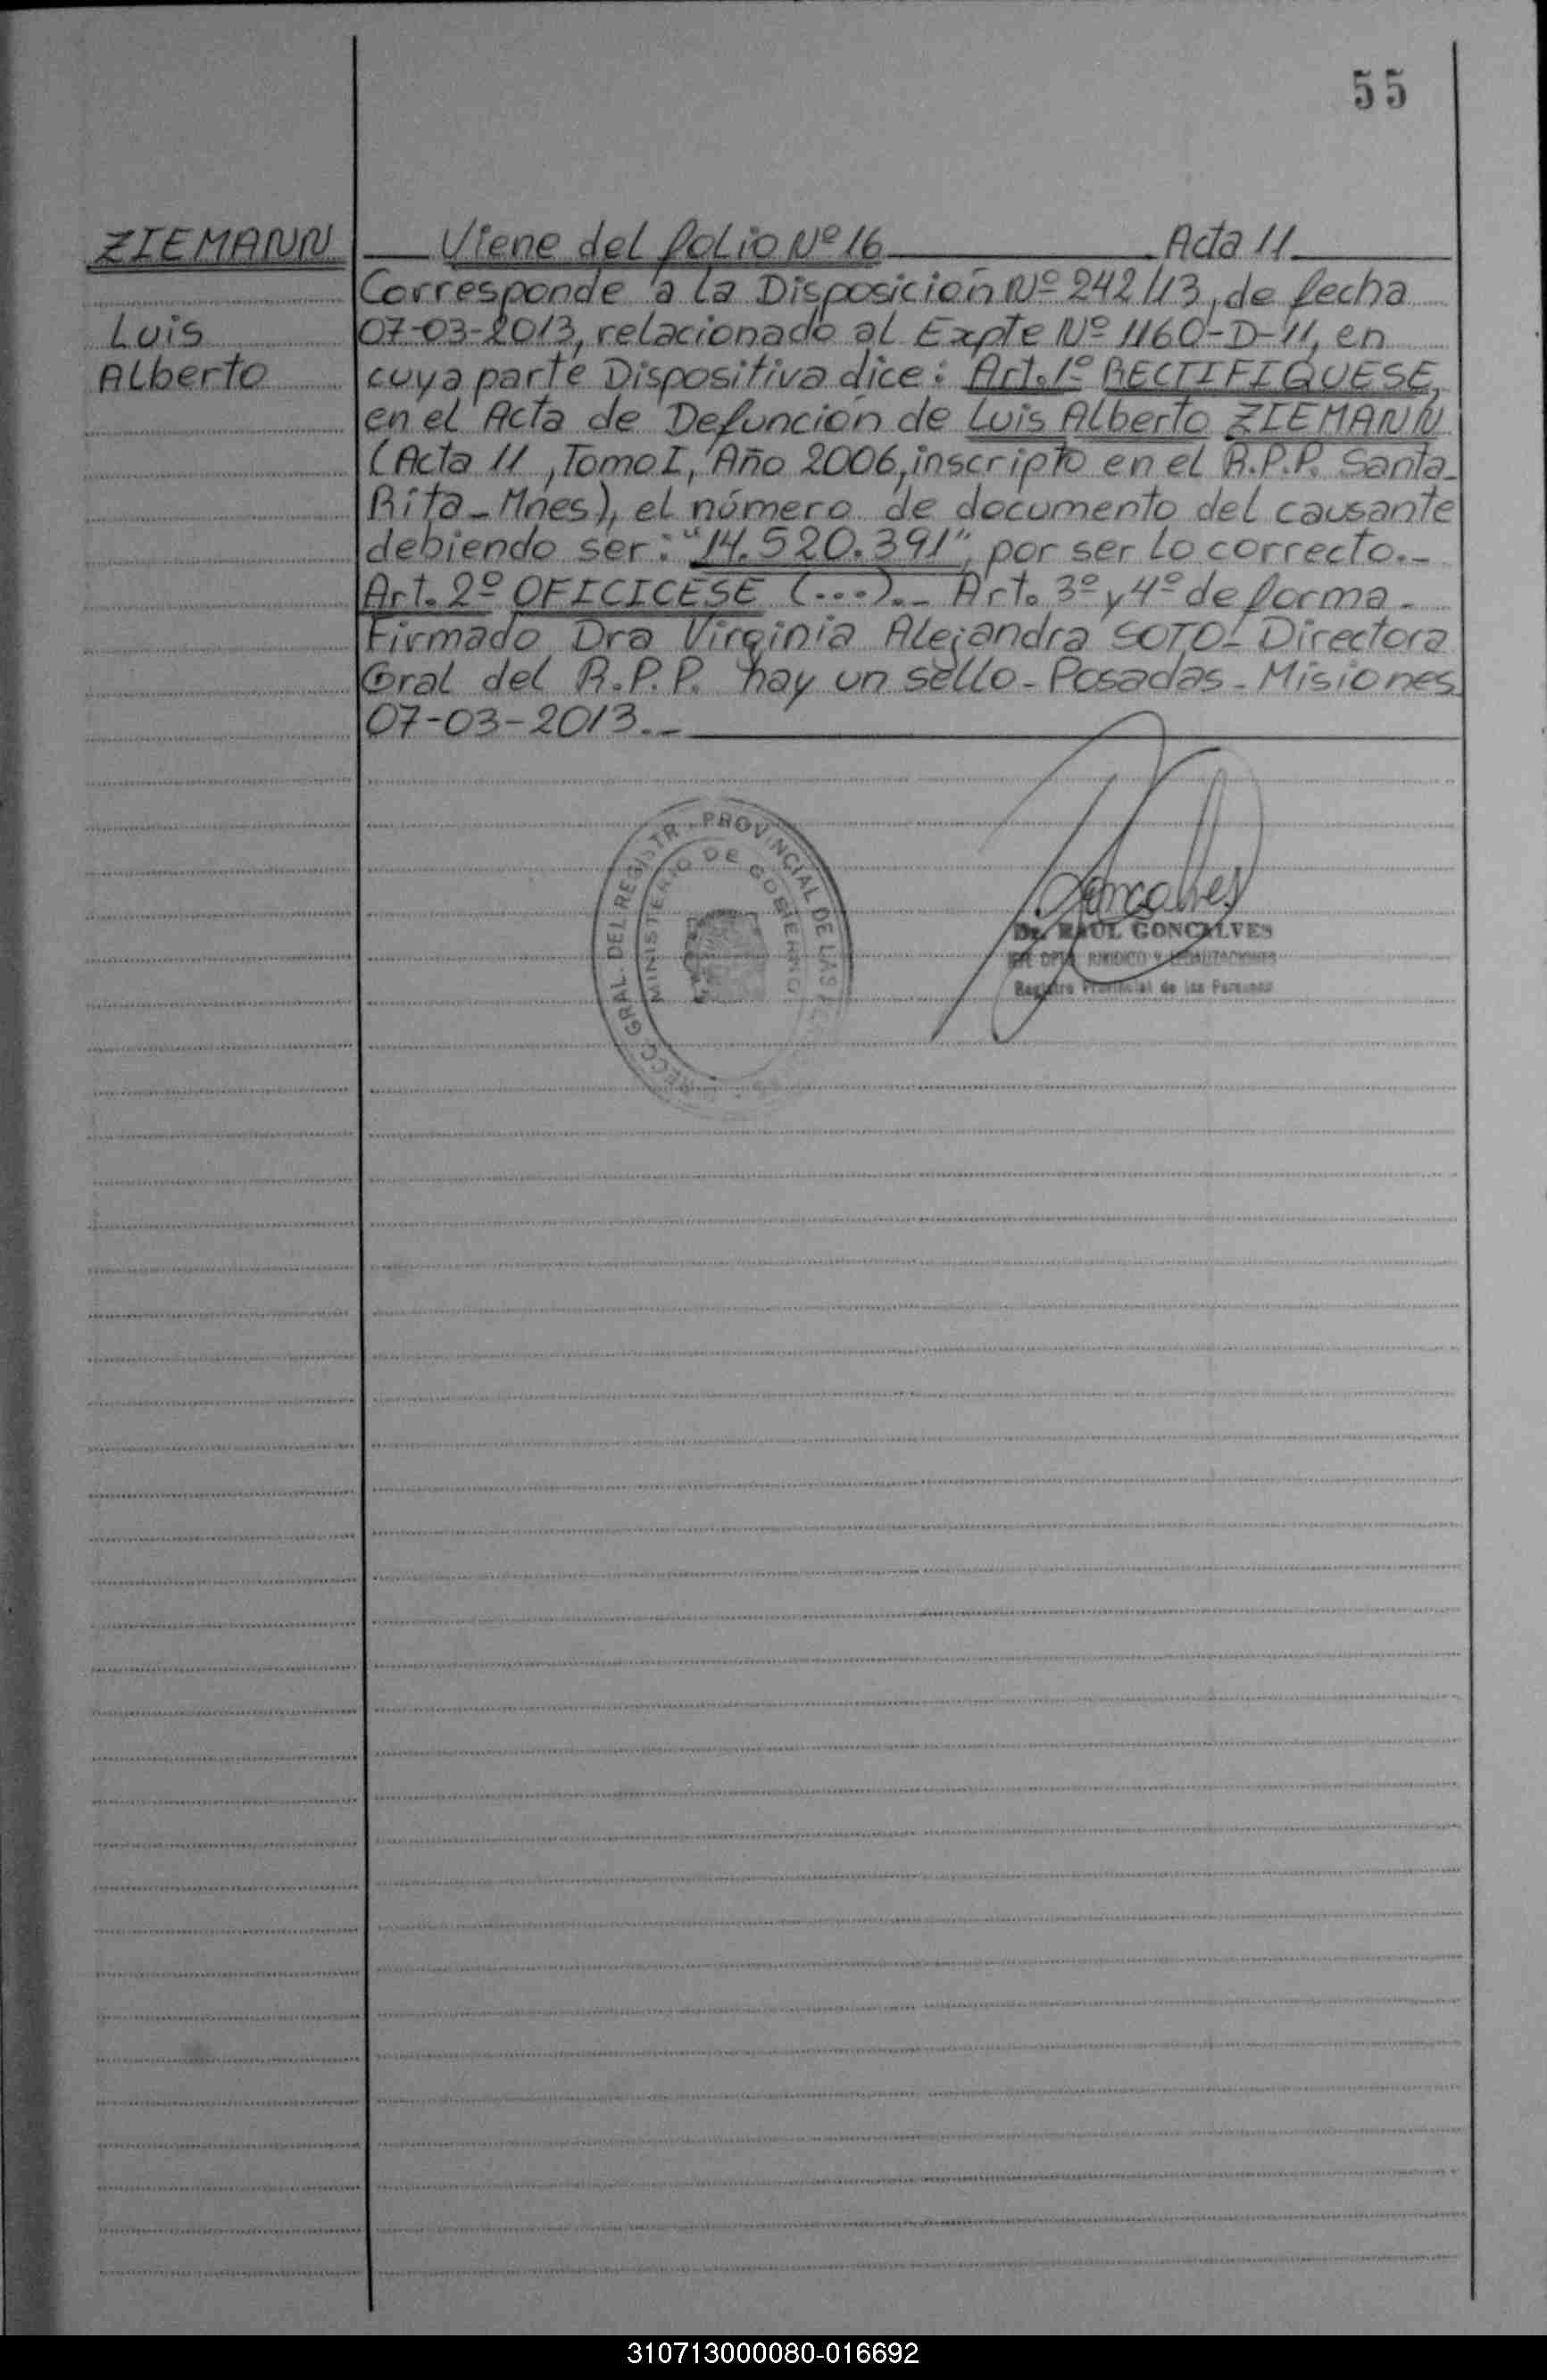 55
ZIEMANN
Luis
Alberto
Viene del folio Nº 16 Acta 11
Corresponde a la Disposición Nº 242/13, de fecha
07-03-2013, relacionado al Expte Nº 1160-D-11, en
cuya parte Dispositiva dice: Art. 1º RECTIFIQUESE,
en el Acta de Defunción de Luis Alberto ZIEMANN
(Acta 11, Tomo I, Año 2006, inscripto en el R.P.P. Santa
Rita - Mnes), el número de documento del causante
debiendo ser: "14.520.391", por ser lo correcto.-
Art. 2º OFICICESE (...).- Art. 3º y 4º de forma-
Firmado Dra Virginia Alejandra SOTO - Directora
Gral del R.P.P. hay un sello - Posadas - Misiones
07-03-2013.-
RECC. GRAL. DEL REGISTR PROVINCIAL DE LAS
MINISTERIO DE GOBIERNO
Goncalves
Dr. RAUL GONCALVES
JURIDICO Y LEGALIZACIONES
Registro Provincial de las Personas
310713000080-016692